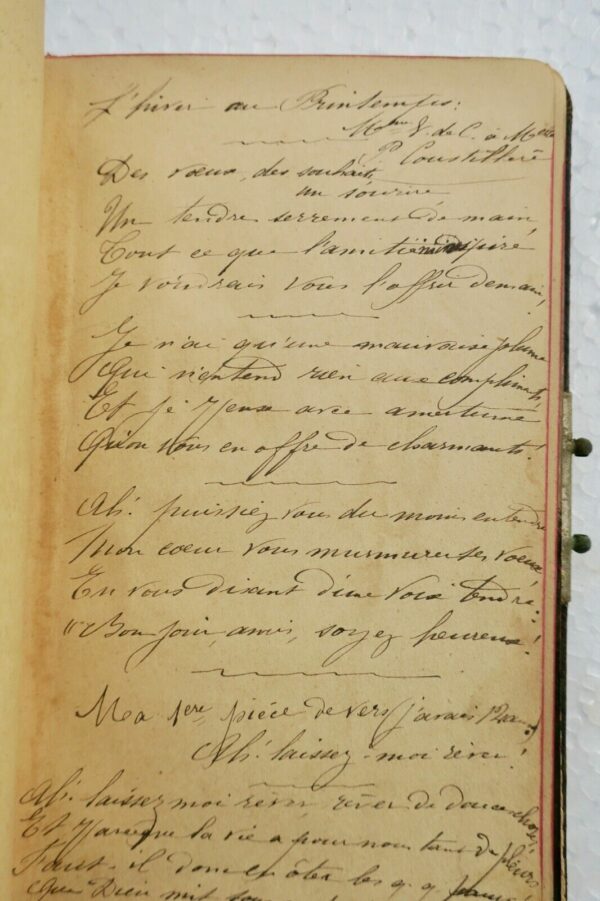 L'hiver au Printemps:
Mme V. de C. à Melle
P. Coustillère
Des vœux, des souhaits,
un sourire
Un tendre serrement de main,
Tout ce que l'amitié inspire
Je voudrais vous l'offrir demain,
Je n'ai qu'une mauvaise plume
Qui n'entend rien aux compliments
Et je pense avec amertume
Qu'on vous en offre de charmants!
Ah! puissiez vous du moins entendre
Mon cœur vous murmurer ses vœux
En vous disant d'une voix tendre:
"Bonjour, amis, soyez heureux!
Ma 1ere pièce de vers (j'avais 12 ans)
Ah! laissez-moi rêver!
Ah! laissez moi rêver, rêver de douces choses
Et puisque la vie a pour nous tant de pleurs
Faut-il donc en ôter les q.q.
Que Dieu mit